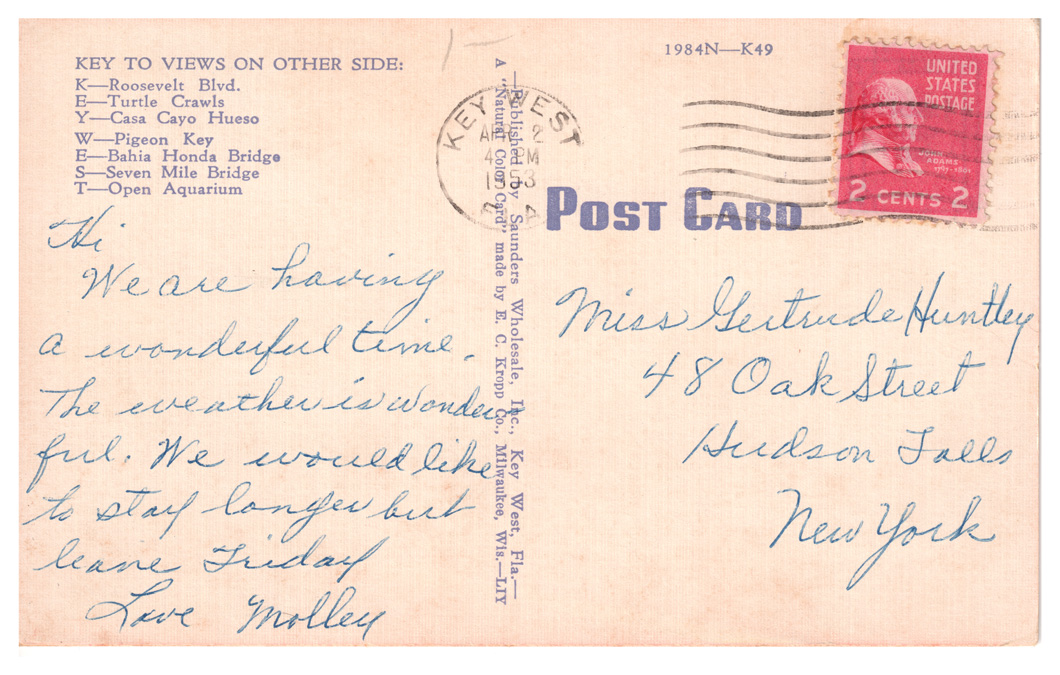 KEY TO VIEWS ON OTHER SIDE:
K—Roosevelt Blvd.
E—Turtle Crawls
Y—Casa Cayo Hueso
W—Pigeon Key
E—Bahia Honda Bridge
S—Seven Mile Bridge
T—Open Aquarium
Hi
We are having
a wonderful time.
The weather is wonder
ful. We would like
to stay longer but
leave Friday
Love Molley
—Published by Saunders Wholesale, Inc., Key West, Fla.—
A "Natural Color Card" made by E. C. Kropp Co., Milwaukee, Wis.—LIY
1984N—K49
KEY WEST
APR 2
PM
1953
FLA
UNITED
STATES
POSTAGE
JOHN
ADAMS
1797-1801
2 CENTS 2
POST CARD
Miss Gertrude Huntley
48 Oak Street
Hudson Falls
New York